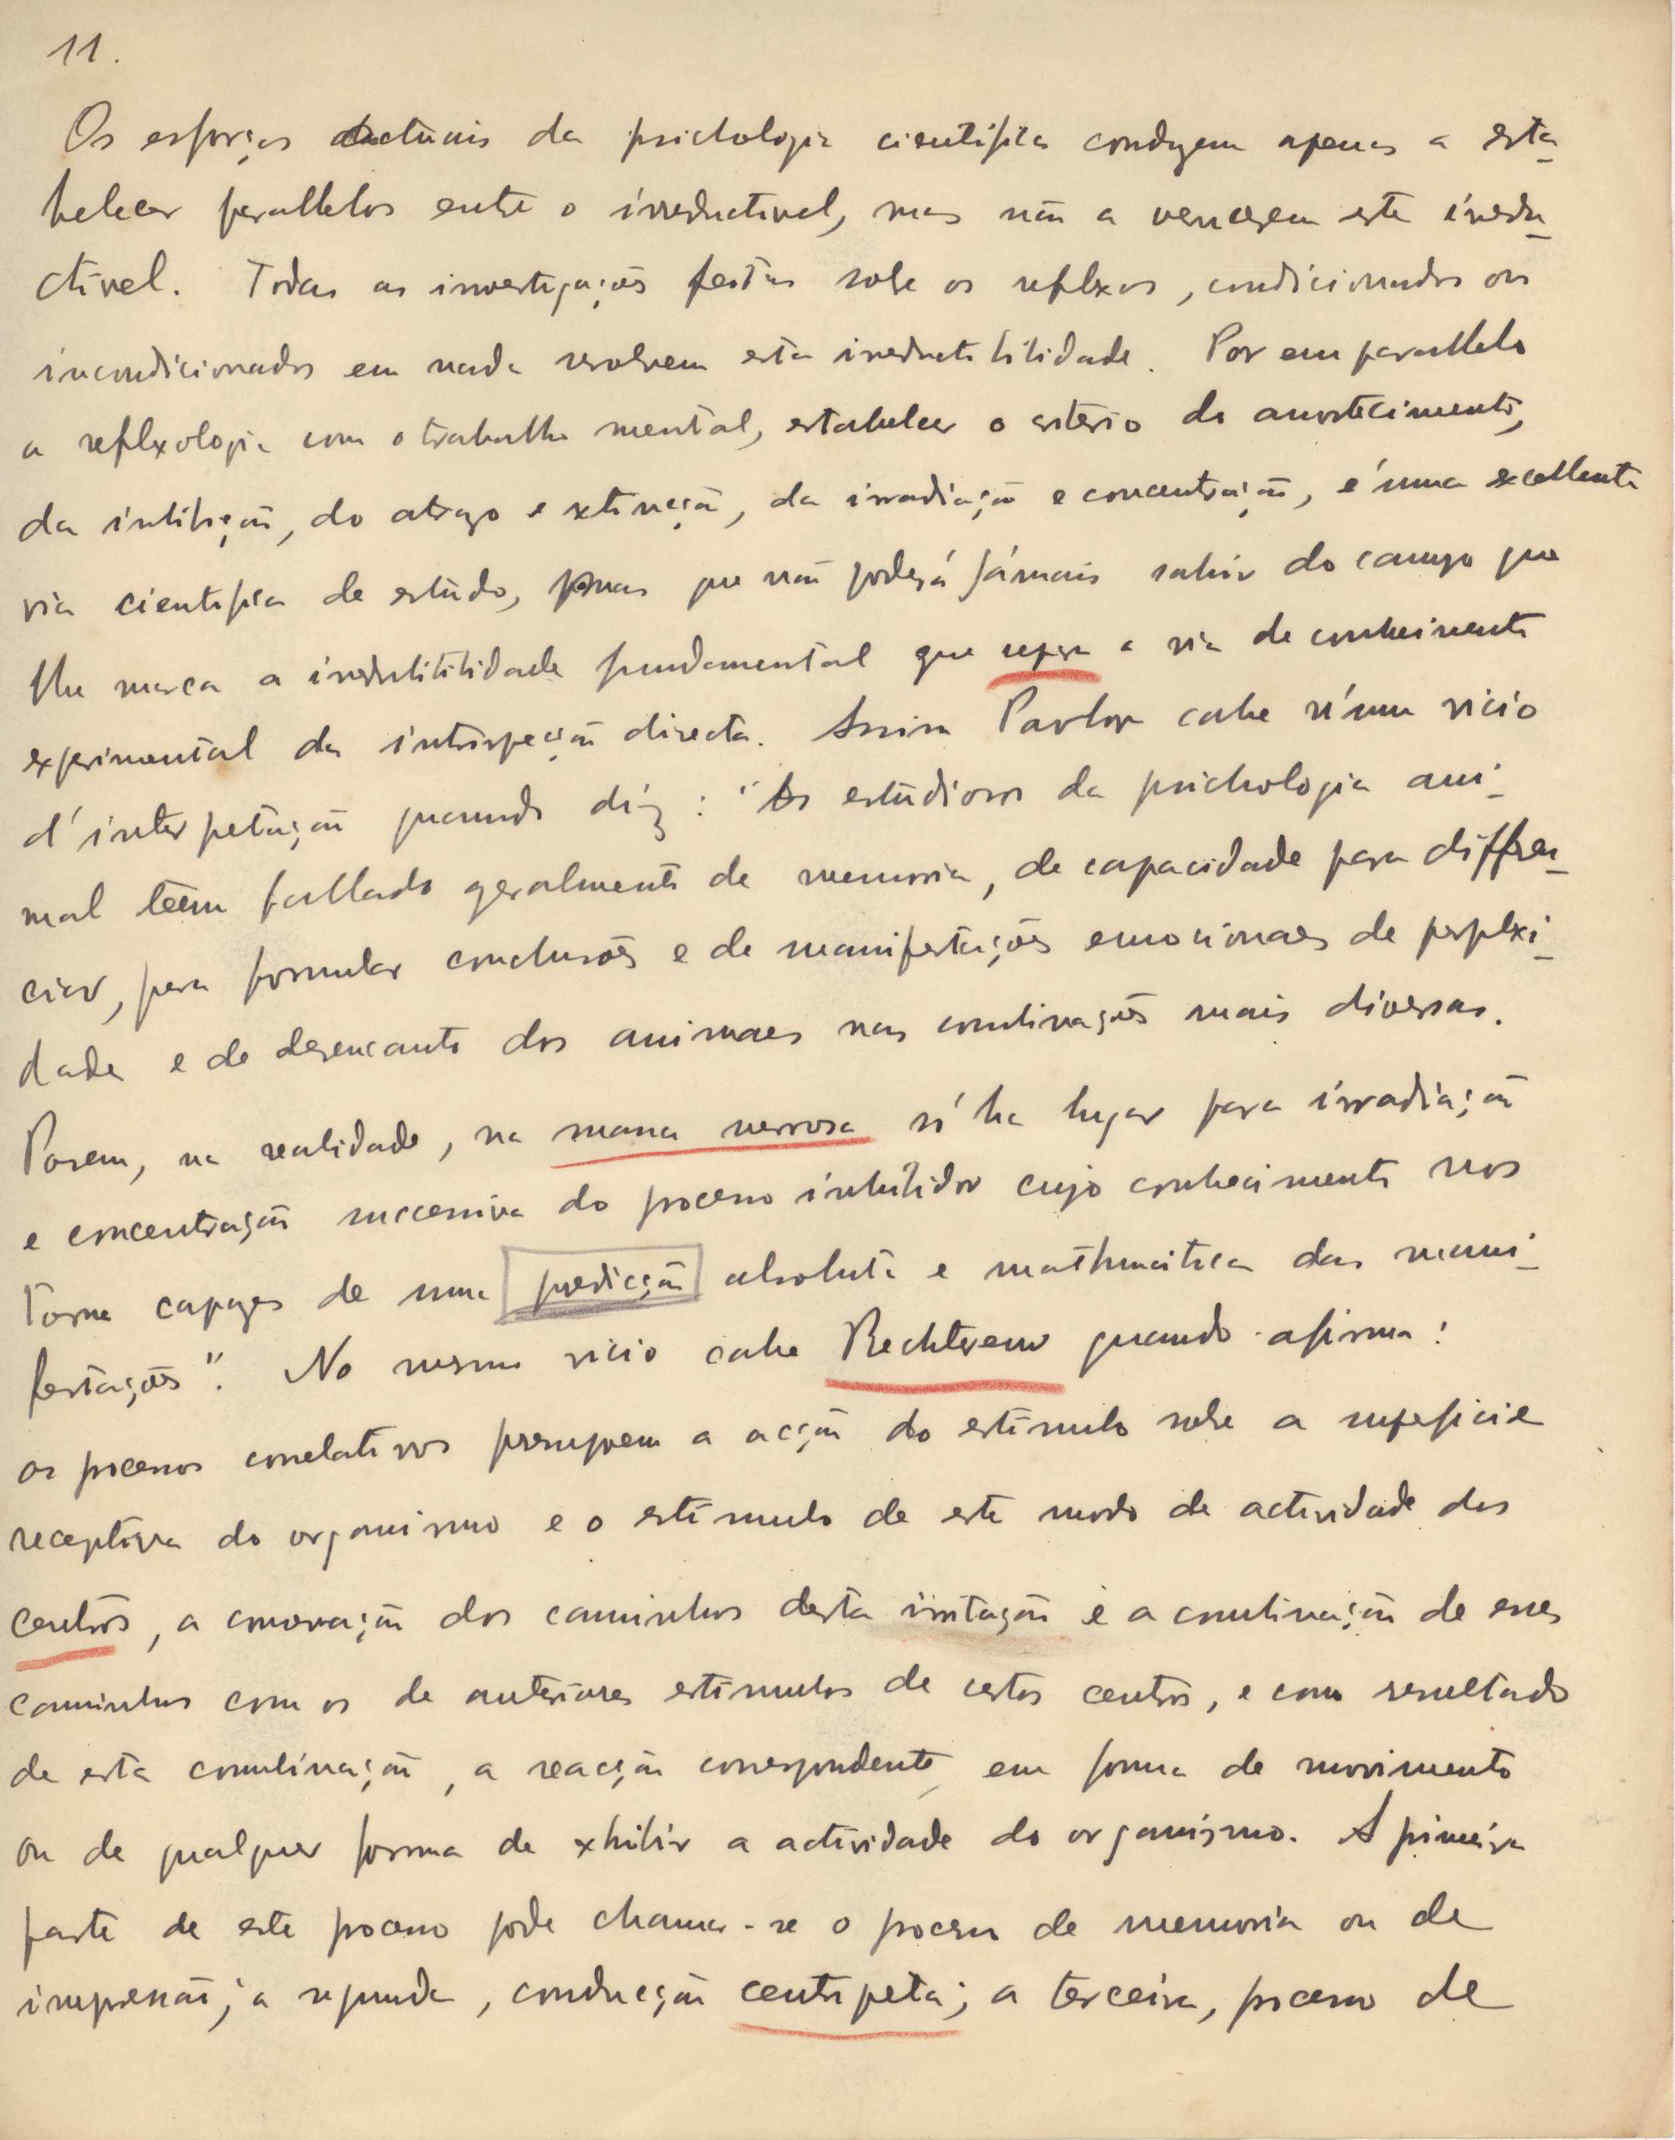 11.
Os esforços actuais da psichologia cientifica conduzem apenas a esta-
belecer parallelos entre o irreductivel, mas não a vencerem este irredu-
ctivel. Todas as investigações feitas sobre os reflexos, condicionados ou
incondicionados em nada resolvem esta irreductibilidade. Por em parallelo
a reflexologia com o trabalho mental, estabelecer o criterio do amortecimento,
da inibição, do atrazo e extincção, da irradiação e concentração, é uma excellente
via cientifica de estudo, mas que não poderá jámais sahir do campo que
lhe marca a irredutibilidade fundamental que separa a via de conhecimento
experimental da introspecção directa. Assim Pavlov cahe n'um vicio
d'interpetração quando diz: "Os estudiosos da psichologia ani-
mal téem fallado geralmente de memoria, de capacidade para differen-
ciar, para formular conclusões e de manifestações emocionaes de perplexi-
dade e de desencanto dos animaes nas combinações mais diversas.
Porem, na realidade, na massa nervosa só ha lugar para irradiação
e concentração successiva do processo inhibidor cujo conhecimento nos
torna capazes de uma predicção absoluta e mathmatica das mani-
festações". No mesmo vicio cahe Bechterew quando afirma:
os processos correlativos presuppoem a acção do estimulo sobre a superficie
receptiva do organismo e o estimulo de este modo de actividade dos
centros, a conservação dos caminhos desta irritação e a combinação de esses
caminhos com os de anteriores estimulos de certos centros, e como resultado
de esta combinação, a reacção correspondente em forma de movimento
ou de qualquer forma de exhibir a actividade do organismo. A primeira
parte de este processo pode chamar-se o processo de memoria ou de
impressão; a segunda, conducção centripeta; a terceira, processo de